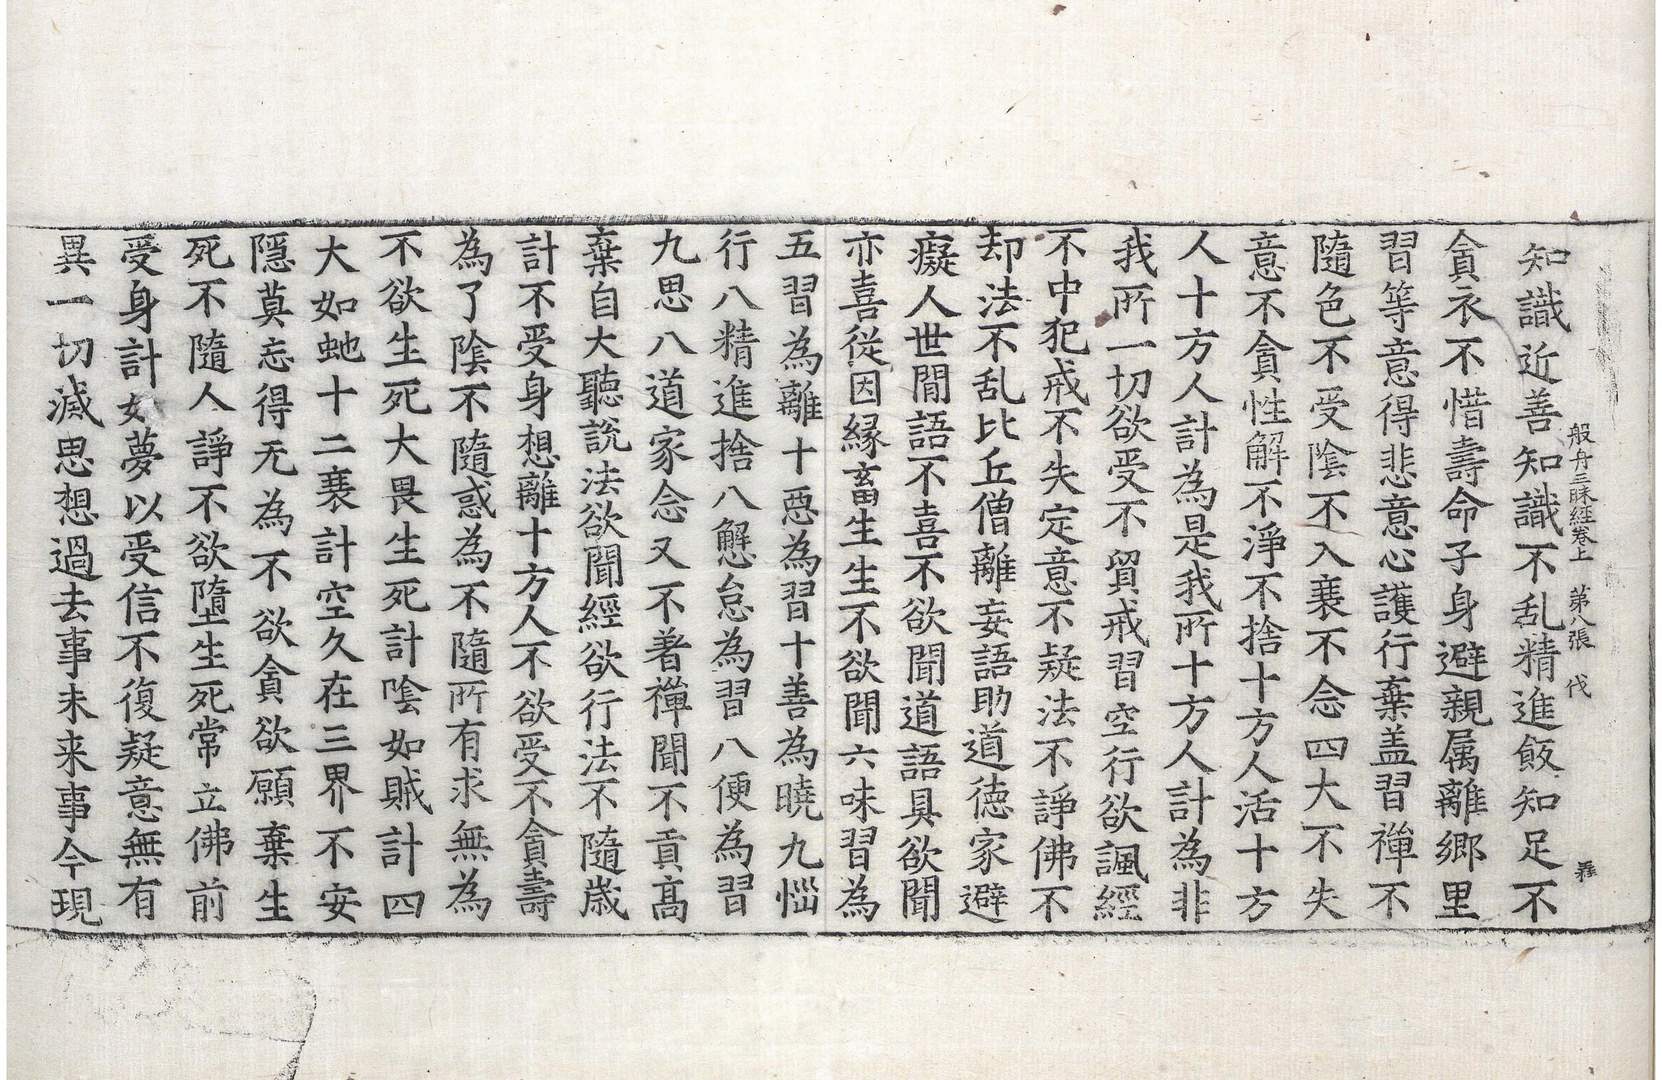 般舟三昧經卷上　第八張　代
知識近善知識不乱精進飯知足不
貪衣不惜壽命子身避親属離鄉里
習等意得悲意心護行棄盖習禪不
隨色不受陰不入衰不念四大不失
意不貪性解不淨不捨十方人活十方
人十方人計為是我所十方人計為非
我所一切欲受不貿戒習空行欲諷經
不中犯戒不失定意不疑法不諍佛不
却法不乱比丘僧離妄語助道德家避
癡人世間語不喜不欲聞道語具欲聞
亦喜從因縁畜生生不欲聞六味習為
五習為離十惡為習十善為曉九惱
行八精進捨八懈怠為習八便為習
九思八道家念又不著禪聞不貢高
棄自大聽說法欲聞經欲行法不隨歲
計不受身想離十方人不欲受不貪壽
為了陰不隨惑為不隨所有求無為
不欲生死大畏生死計陰如賊計四
大如虵十二衰計空久在三界不安
隱莫忘得无為不欲貪欲願棄生
死不隨人諍不欲墮生死常立佛前
受身計如夢以受信不復疑意無有
異一切滅思想過去事未来事今現